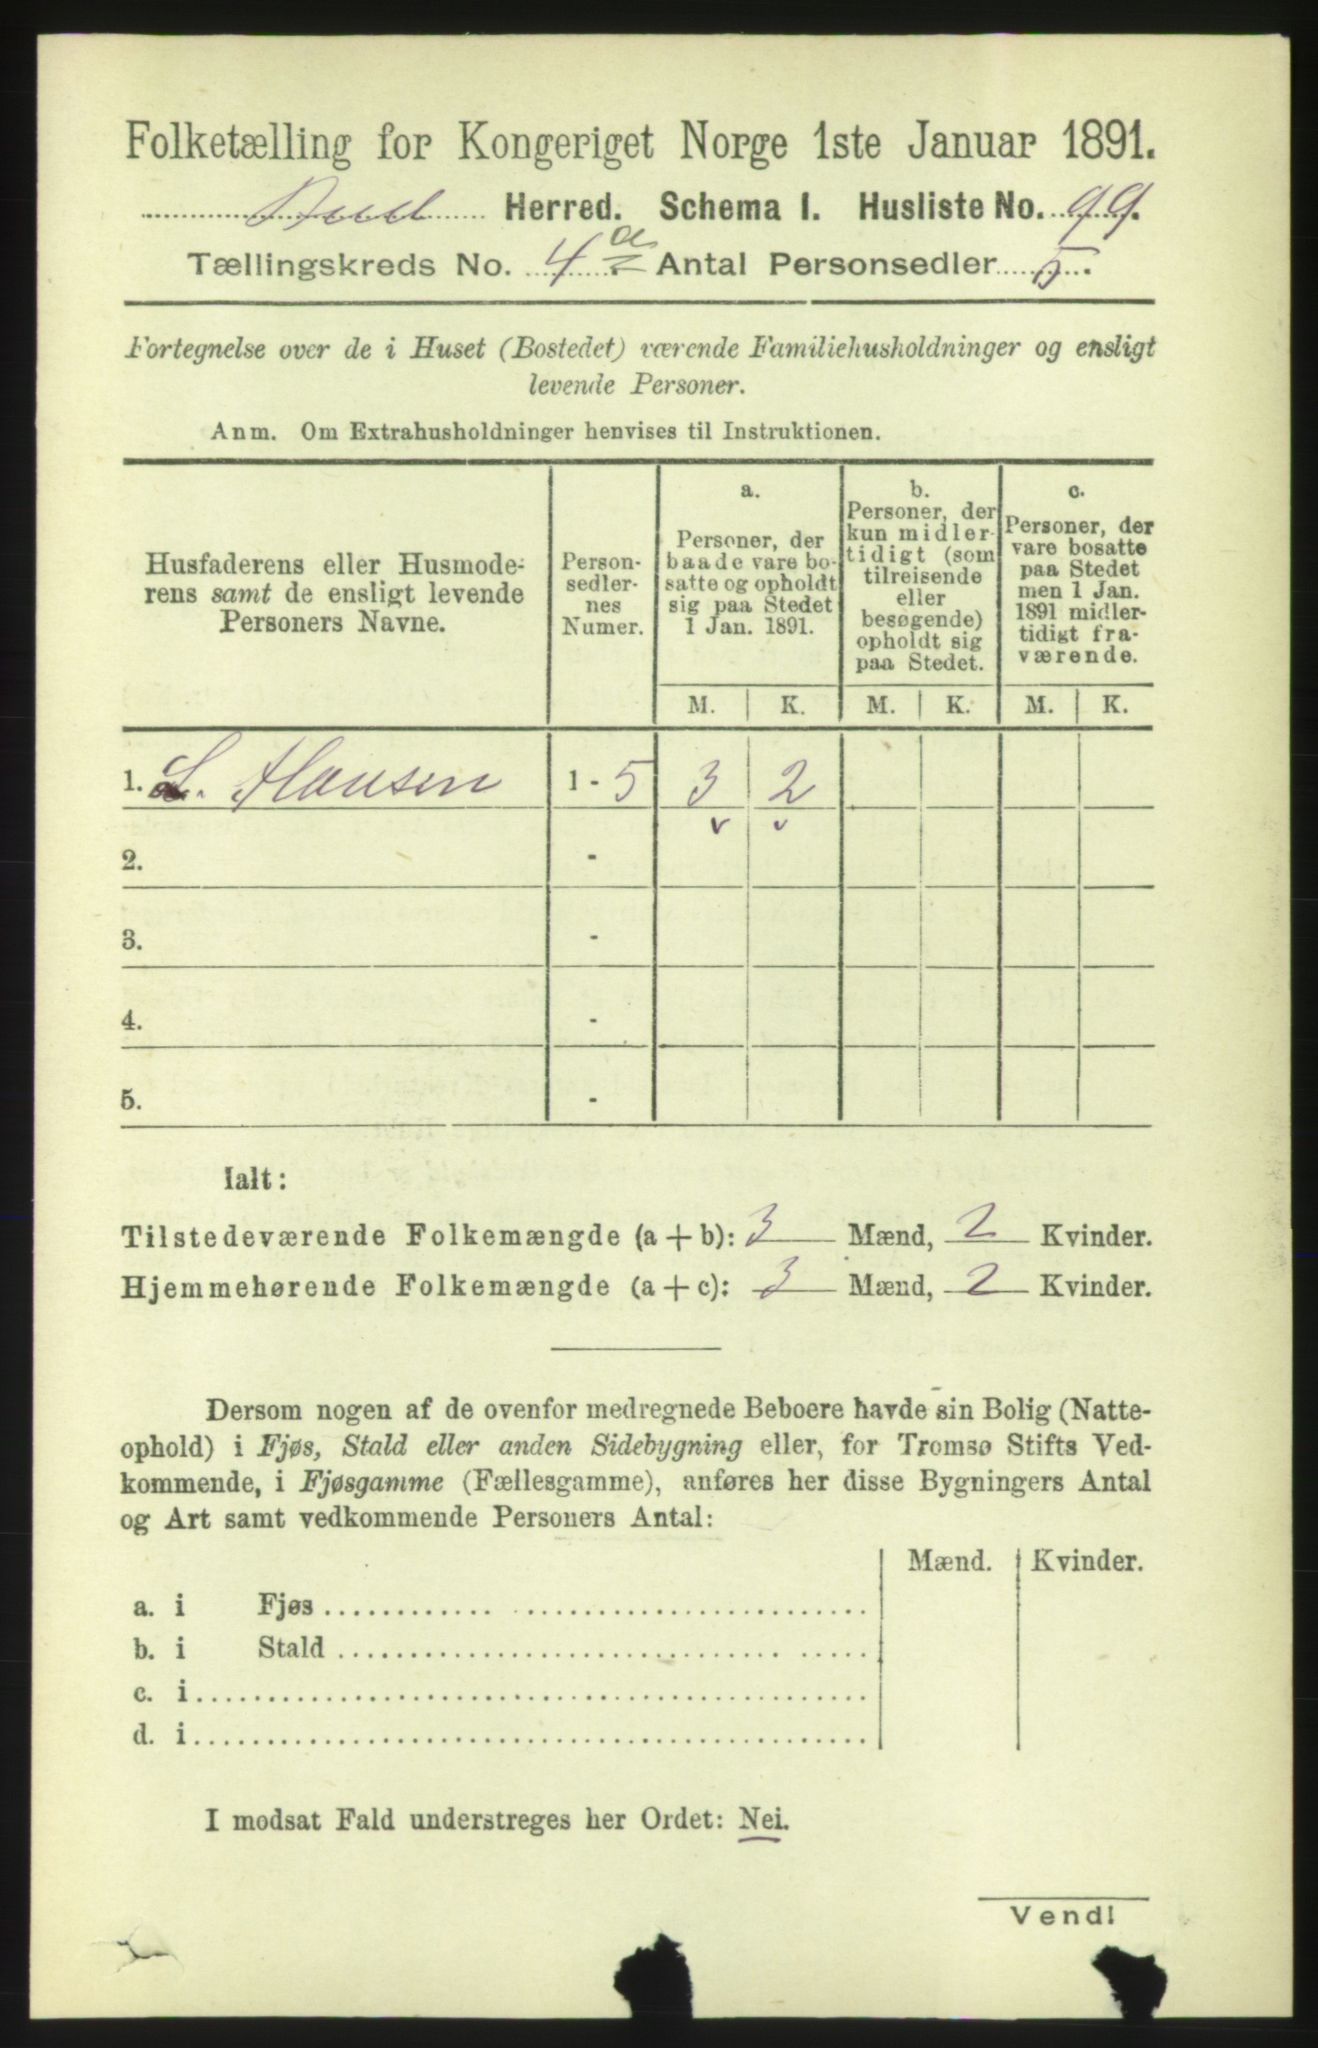 Folketælling for Kongeriget Norge 1ste Januar 1891.
Bud Herred. Schema I. Husliste No. 99.
Tællingskreds No. 4a. Antal Personsedler 5.
Fortegnelse over de i Huset (Bostedet) værende Familiehusholdninger og ensligt
levende Personer.
Anm. Om Extrahusholdninger henvises til Instruktionen.
Husfaderens eller Husmode-
rens samt de ensligt levende
Personers Navne.
Person-
sedler-
nes
Numer.
a.
Personer, der
baade vare bo-
satte og opholdt
sig paa Stedet
1 Jan. 1891.
b.
Personer, der
kun midler-
tidigt (som
tilreisende
eller
besøgende)
opholdt sig
paa Stedet.
c.
Personer, der
vare bosatte
paa Stedet
men 1 Jan.
1891 midler-
tidigt fra-
værende.
M. K. M. K. M. K.
1. L. Hansen 1 - 5 3 2
v v
2. -
3. -
4. -
5. -
Ialt:
Tilstedeværende Folkemængde (a + b): 3 Mænd, 2 Kvinder.
Hjemmehørende Folkemængde (a + c): 3 Mænd, 2 Kvinder.
Dersom nogen af de ovenfor medregnede Beboere havde sin Bolig (Natte-
ophold) i Fjøs, Stald eller anden Sidebygning eller, for Tromsø Stifts Ved-
kommende, i Fjøsgamme (Fællesgamme), anføres her disse Bygningers Antal
og Art samt vedkommende Personers Antal:
Mænd. Kvinder.
a. i Fjøs
b. i Stald
c. i
d. i
I modsat Fald understreges her Ordet: Nei.
Vend!